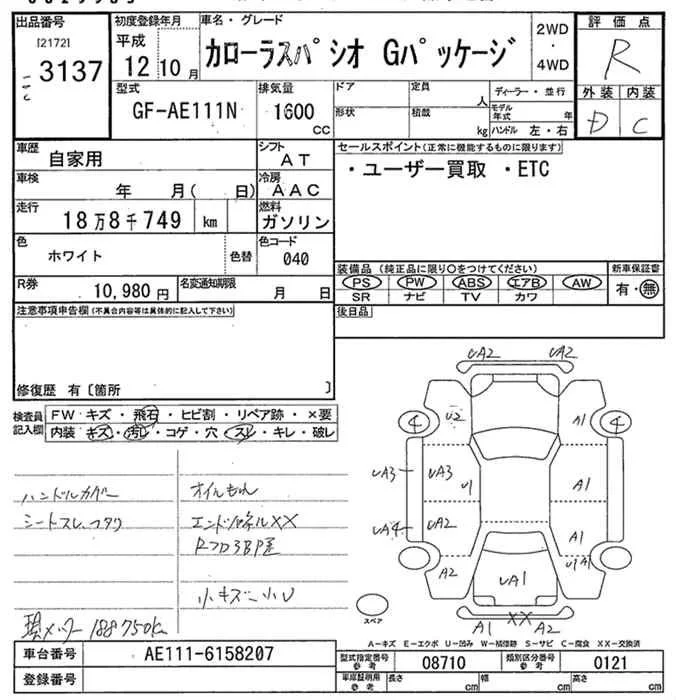 出品番号 初度登録年月 車名・グレード 2WD・4WD 評価点
[2172] 3137 平成 12年10月 カローラスパシオ Gパッケージ R
型式 排気量 ドア 定員 人 ディーラー・並行 外装 内装
GF-AE111N 1600 cc 形状 積載 kg モデル年式 年 ハンドル 左・右 D C
車歴 自家用 シフト AT セールスポイント(正常に機能するものに限ります)
車検 年 月( 日) 冷房 AAC ・ユーザー買取 ・ETC
走行 18万8千749 km 燃料 ガソリン
色 ホワイト 色替 色コード 040
装備品(純正品に限り○をつけてください) 新車保証書
R券 10,980円 名変通知期限 月 日 PS PW ABS エアB AW 有・無
SR ナビ TV カワ
注意事項申告欄(不具合内容等は具体的に記入して下さい) 後日品
修復歴 有〔箇所 〕
検査員記入欄 FW キズ・飛石・ヒビ割・リペア跡・×要
内装 キズ・汚レ・コゲ・穴・スレ・キレ・破レ
UA2 UA2
4 U2 A1 4
UA3 UA3 U1 A1
UA4 UA2 A1
A2 UA1 U1 A1
スペア A1 XX A2
ハンドルカバー オイルもれ
シートスレ、
エンドパネルXX
小キズ 小U
現メーター 188750km
A-キズ E-エクボ U-凹み W-補修跡 S-サビ C-腐食 XX-交換済
車台番号 AE111-6158207 型式指定番号 参考 08710 類別区分番号 参考 0121
登録番号 車庫証明用 参考 長さ cm 幅 cm 高さ cm